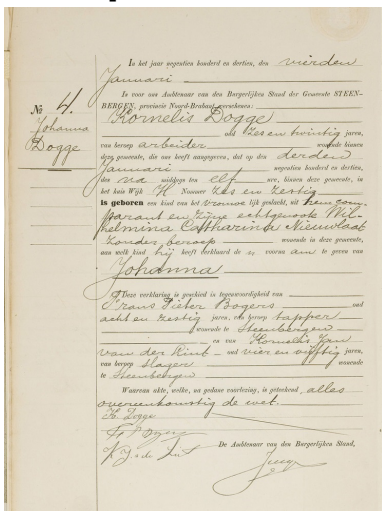 No 4.
Johanna
Dogge
In het jaar negentien honderd en dertien, den vierden
Januari
Is voor ons Ambtenaar van den Burgerlijken Stand der Gemeente STEEN-
BERGEN, provincie Noord-Brabant verschenen:
Kornelis Dogge
oud zes en twintig jaren,
van beroep arbeider woonende binnen
deze gemeente, die ons heeft aangegeven, dat op den derden
Januari negentien honderd en dertien,
des na middags ten elf ure, binnen deze gemeente, in
het huis Wijk H Nommer zes en zestig
is geboren een kind van het vrouwelijk geslacht, uit hem com-
parant en zijne echtgenoote Wil-
helmina Catharina Nieuwlaat
zonder beroep woonende in deze gemeente,
aan welk kind hij heeft verklaard de voornaam te geven van
Johanna
Deze verklaring is geschied in tegenwoordigheid van
Frans Pieter Bogers oud
acht en zestig jaren, van beroep tapper
woonende te Steenbergen
en van Kornelis Jan
van der Rint oud vier en vijftig jaren,
van beroep slager woonende
te Steenbergen
Waarvan akte, welke, na gedane voorlezing, is geteekend, alles
overeenkomstig de wet.
K. Dogge
De Ambtenaar van den Burgerlijken Stand,